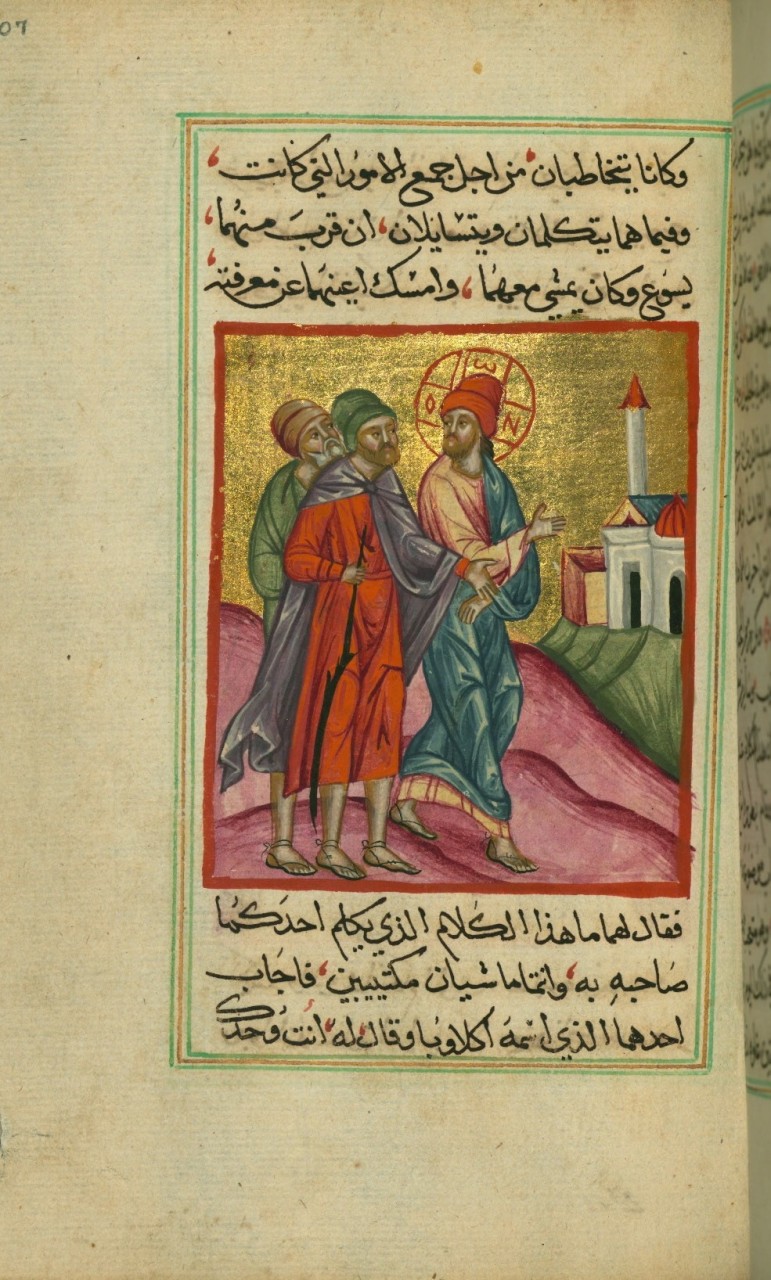 07
وكانا يتخاطبان، من اجل جمع الامور التي كانت،
وفيما هما يتكلمان ويتسايلان، ان قرب منهما،
يسوع وكان يمشي معهما، وامسك اعينهما عن معرفته،
Ο Ѡ Ν
فقال لهما ما هذا الكلام الذي يكلم احدكما
صاحبه به، وانتما ماشيان مكتيبين، فاجاب
احدهما الذي اسمه اكلاوبا وقال له، أنت وحدك